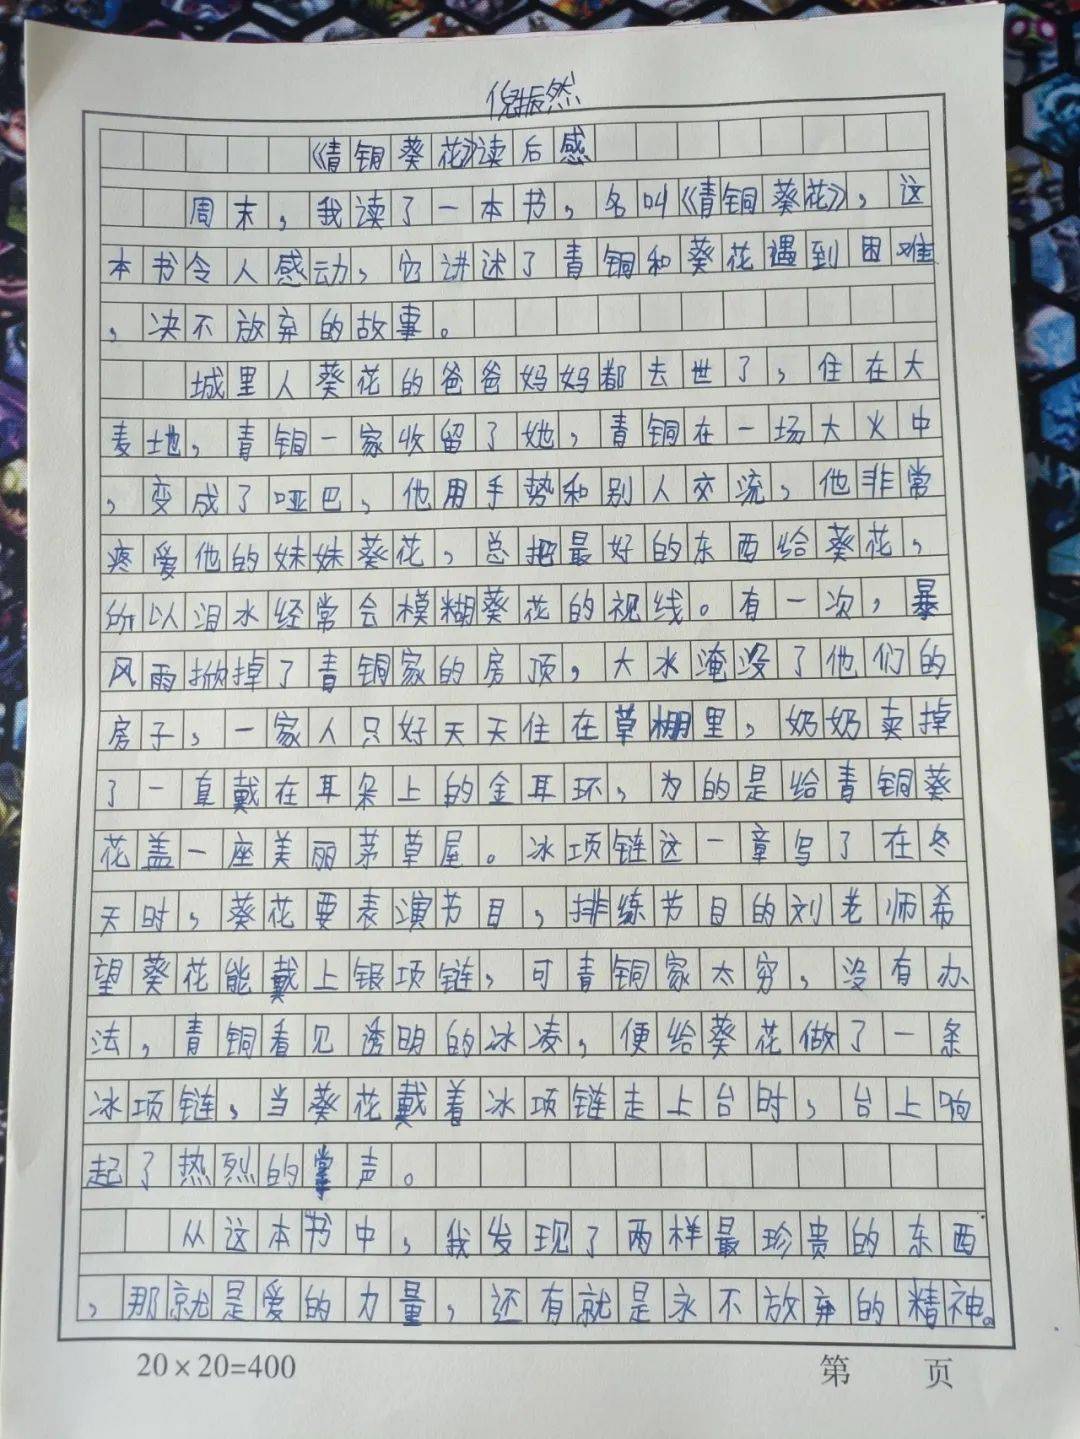 倪振然
《青铜葵花》读后感
周末，我读了一本书，名叫《青铜葵花》，这
本书令人感动，它讲述了青铜和葵花遇到困难
，决不放弃的故事。
城里人葵花的爸爸妈妈都去世了，住在大
麦地，青铜一家收留了她，青铜在一场大火中
，变成了哑巴，他用手势和别人交流，他非常
疼爱他的妹妹葵花，总把最好的东西给葵花，
所以泪水经常会模糊葵花的视线。有一次，暴
风雨掀掉了青铜家的房顶，大水淹没了他们的
房子，一家人只好天天住在草棚里，奶奶卖掉
了一直戴在耳朵上的金耳环，为的是给青铜葵
花盖一座美丽茅草屋。冰项链这一章写了在冬
天时，葵花要表演节目，排练节目的刘老师希
望葵花能戴上银项链，可青铜家太穷，没有办
法，青铜看见透明的冰凌，便给葵花做了一条
冰项链，当葵花戴着冰项链走上台时，台上响
起了热烈的掌声。
从这本书中，我发现了两样最珍贵的东西
，那就是爱的力量，还有就是永不放弃的精神。
20×20=400
第 页